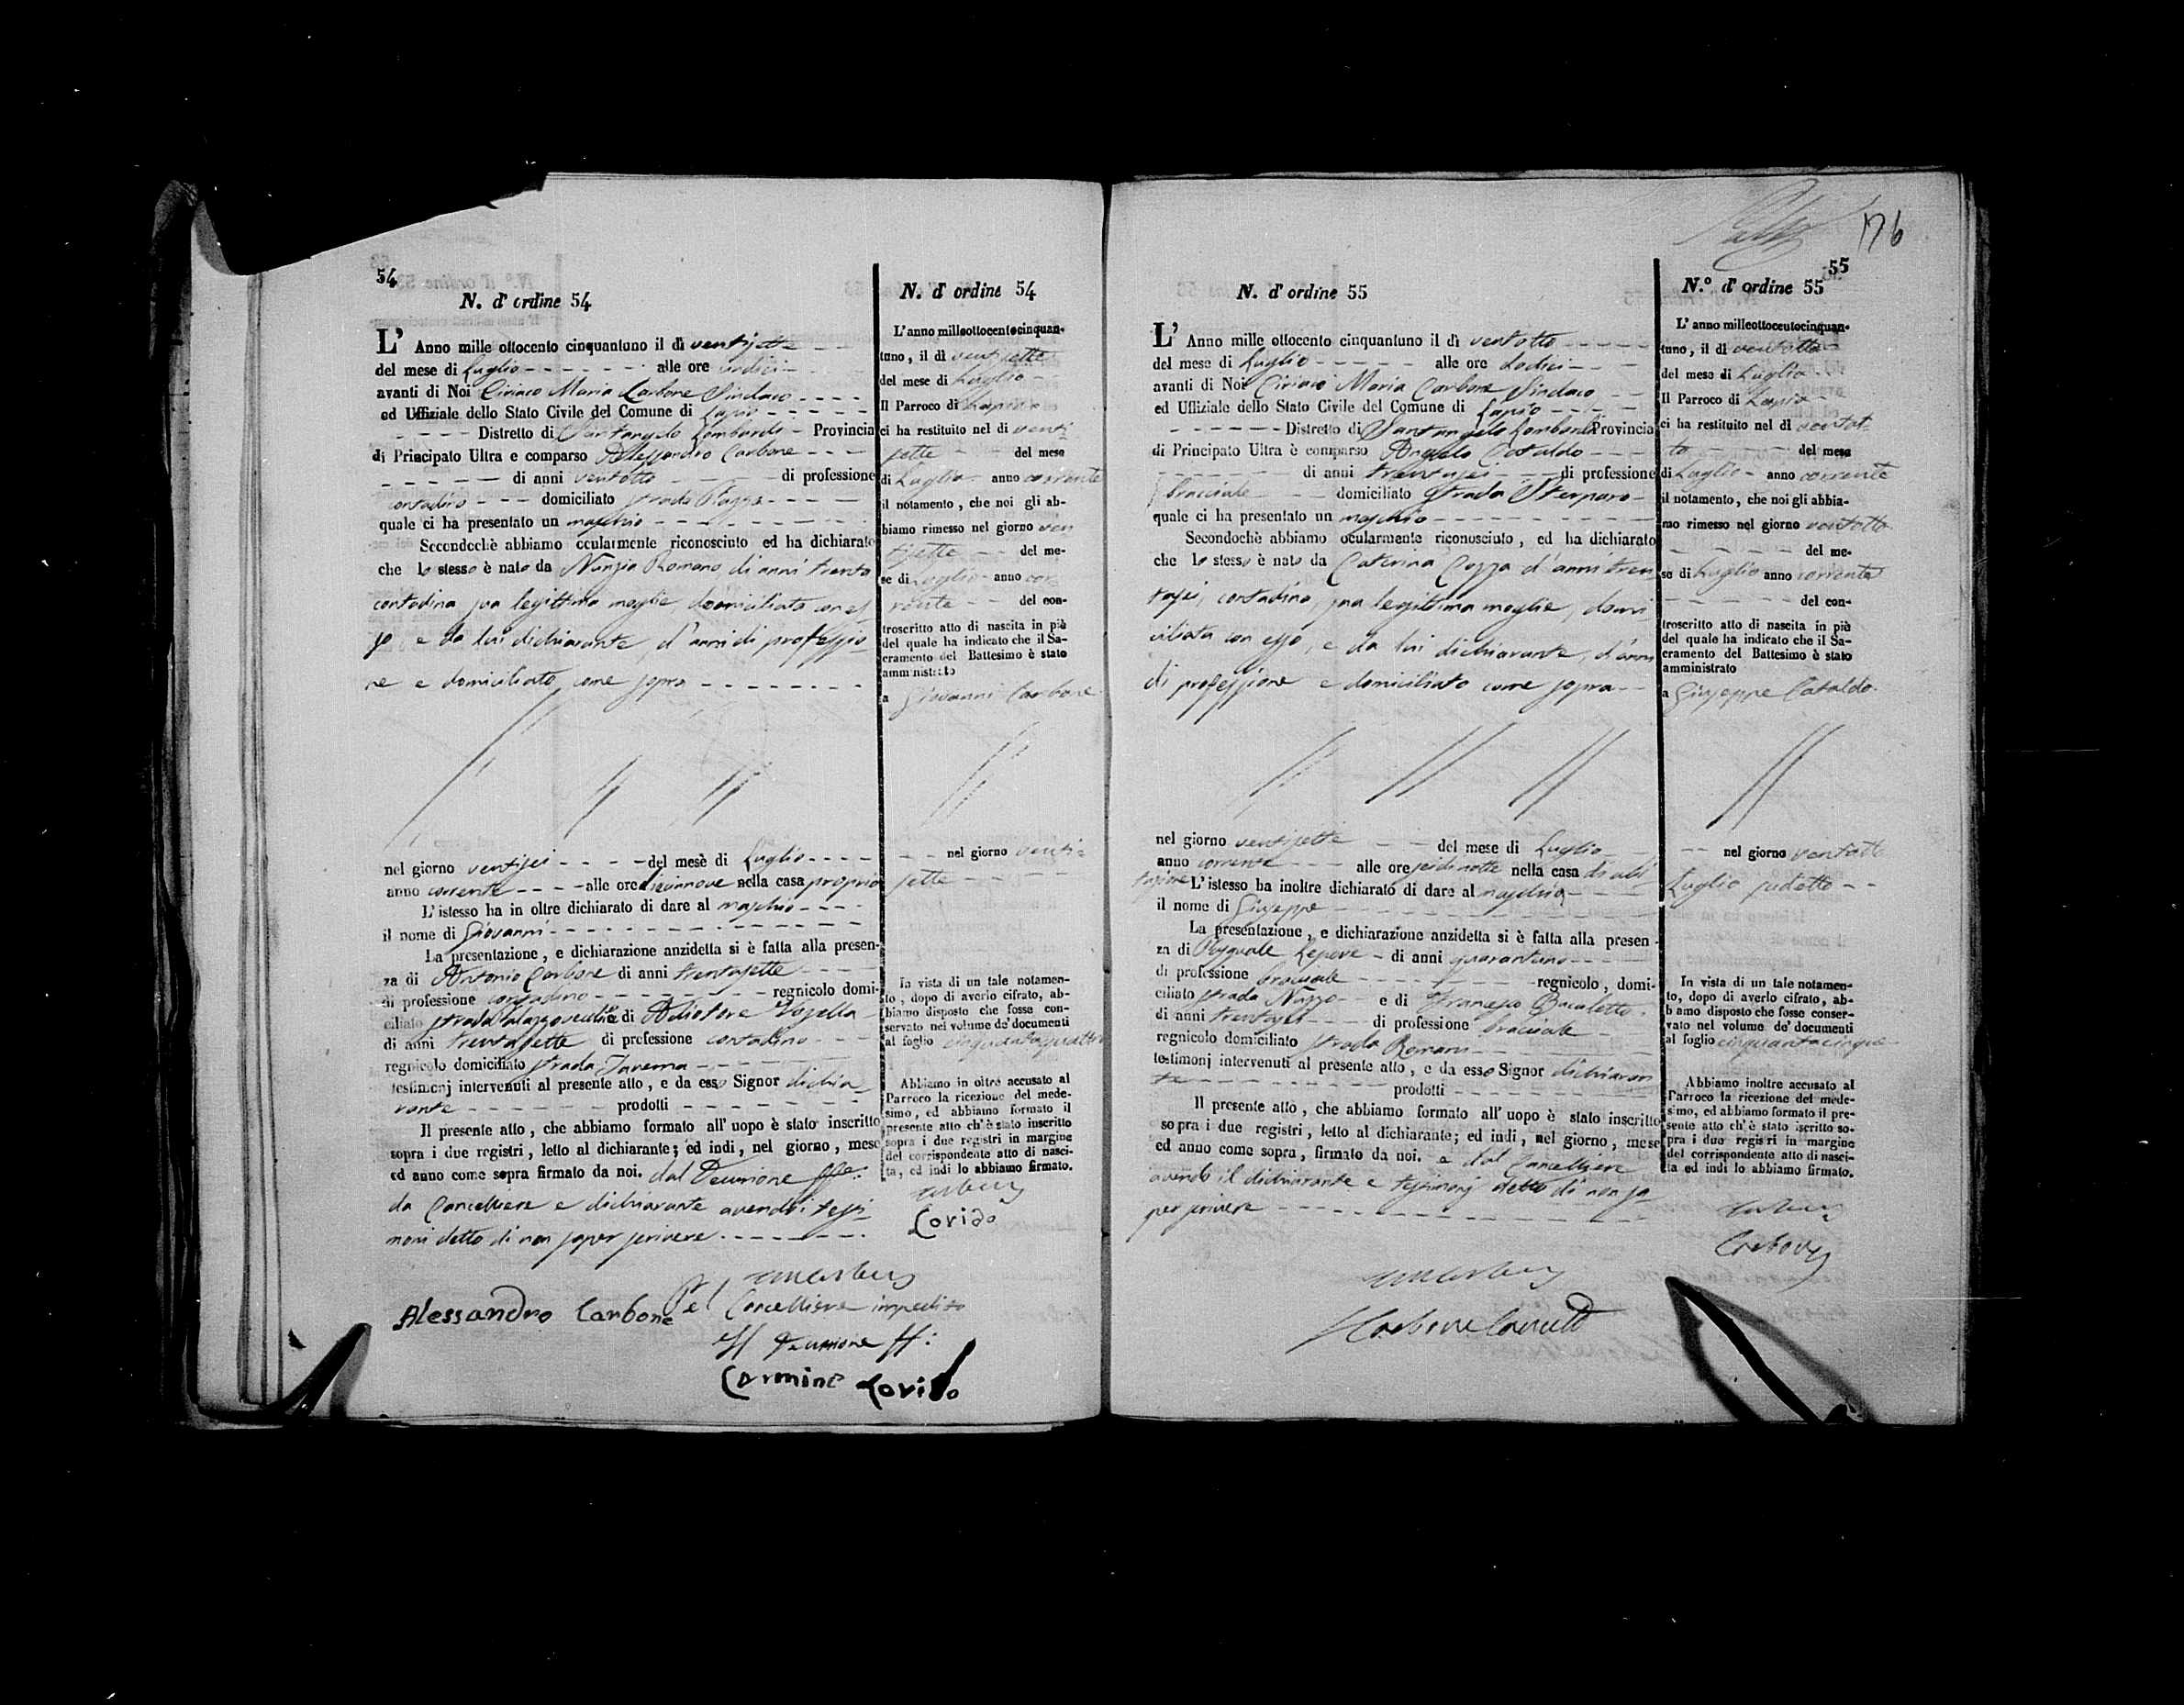 54
N. d' ordine 54
L' Anno mille ottocento cinquantuno il dì ventisette
del mese di Luglio alle ore undici
avanti di Noi Ciriaco Maria Carbone Sindaco
ed Uffiziale dello Stato Civile del Comune di Lapio
Distretto di Santangelo Lombardi Provincia
di Principato Ultra e comparso Alessandro Carbone
di anni ventotto di professione
contadino domiciliato strada Piazza
quale ci ha presentato un maschio
Secondochè abbiamo ocularmente riconosciuto ed ha dichiarato
che lo stesso è nato da Nunzia Romano di anni trenta
contadina sua legittima moglie, domiciliata con es
so e da lui dichiarante, d'anni di professio
ne e domiciliato come sopra
nel giorno ventisei del mese di Luglio
anno corrente alle ore diecinnove nella casa propria
L'istesso ha in oltre dichiarato di dare al maschio
il nome di Giovanni
La presentazione, e dichiarazione anzidetta si è fatta alla presen-
za di Antonio Carbone di anni trentasette
di professione contadino regnicolo domi-
ciliato strada e di
di anni trentasette di professione contadino
regnicolo domiciliato strada Taverna
testimonj intervenuti al presente atto, e da esso Signor dichia
rante prodotti
Il presente atto, che abbiamo formato all'uopo è stato inscritto
sopra i due registri, letto al dichiarante; ed indi, nel giorno, mese
ed anno come sopra firmato da noi. dal Decurione ff.
da Cancelliere e dichiarante avendo i testi
moni detto di non saper scrivere
Alessandro Carbone
Pel Cancelliere impedito
Il Decurione ff:
Carmine Lovido
N. d' ordine 54
L'anno milleottocentocinquan-
tuno, il dì ventisette
del mese di Luglio
Il Parroco di Lapio
ci ha restituito nel dì venti
sette del mese
di Luglio anno corrente
il notamento, che noi gli ab-
biamo rimesso nel giorno ven
tisette del me-
se di Luglio anno cor
rente del con-
troscritto atto di nascita in piè
del quale ha indicato che il Sa-
cramento del Battesimo è stato
amministrato
a Giovanni Carbone
nel giorno venti-
sette
In vista di un tale notamen-
to, dopo di averlo cifrato, ab-
biamo disposto che fosse con-
servato nel volume de' documenti
al foglio cinquantaquattro
Abbiamo in oltre accusato al
Parroco la ricezione del mede-
simo, ed abbiamo formato il
presente atto ch'è stato inscritto
sopra i due registri in margine
del corrispondente atto di nasci-
ta, ed indi lo abbiamo firmato.
Lovido
176
55
N. d' ordine 55
L' Anno mille ottocento cinquantuno il dì ventotto
del mese di Luglio alle ore dodici
avanti di Noi Ciriaco Maria Carbone Sindaco
ed Uffiziale dello Stato Civile del Comune di Lapio
Distretto di Santangelo Lombardi Provincia
di Principato Ultra è comparso Angelo Cataldo
di anni trentasei di professione
bracciale domiciliato Strada Sterparo
quale ci ha presentato un maschio
Secondochè abbiamo ocularmente riconosciuto, ed ha dichiarato
che lo stesso è nato da Caterina Cozza d'anni tren
tasei, contadina, sua legittima moglie, domi
ciliata con esso, e da lui dichiarante, d'anni
di professione e domiciliato come sopra
nel giorno ventisette del mese di Luglio
anno corrente alle ore sei di notte nella casa di abi
tazione L'istesso ha inoltre dichiarato di dare al maschio
il nome di Giuseppe
La presentazione, e dichiarazione anzidetta si è fatta alla presen-
za di Pasquale Lepore di anni quarantuno
di professione bracciale regnicolo, domi-
ciliato strada e di Francesco
di anni trentasei di professione bracciale
regnicolo domiciliato strada Romani
testimonj intervenuti al presente atto, e da esso Signor dichiaran
te prodotti
Il presente atto, che abbiamo formato all'uopo è stato inscritto
sopra i due registri, letto al dichiarante; ed indi, nel giorno, mese
ed anno come sopra, firmato da noi. e dal Cancelliere
avendo il dichiarante e testimonj detto di non sa
per scrivere
N.° d' ordine 55
L'anno milleottocentocinquan-
tuno, il dì ventotto
del mese di Luglio
Il Parroco di Lapio
ci ha restituito nel dì ventot
to del mese
di Luglio anno corrente
il notamento, che noi gli abbia-
mo rimesso nel giorno ventotto
del me-
se di Luglio anno corrente
del con-
troscritto atto di nascita in piè
del quale ha indicato che il Sa-
cramento del Battesimo è stato
amministrato
a Giuseppe Cataldo
nel giorno ventotto
Luglio sudetto
In vista di un tale notamen-
to, dopo di averlo cifrato, ab-
biamo disposto che fosse conser-
vato nel volume de' documenti
al foglio cinquantacinque
Abbiamo inoltre accusato al
Parroco la ricezione del mede-
simo, ed abbiamo formato il pre-
sente atto ch'è stato iscritto so-
pra i due registri in margine
del corrispondente atto di nasci-
ta ed indi lo abbiamo firmato.